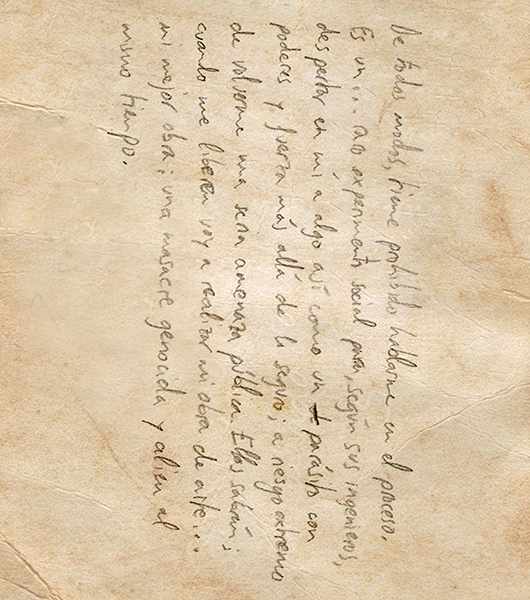 De todos modos, tiene prohibido hablarme en el proceso.
Es un... raro experimento social para, según sus ingenieros,
despertar en mí a algo así como un parásito con
poderes y fuerza más allá de lo seguro; a riesgo extremo
de volverme una seria amenaza pública. Ellos sabrán;
cuando me liberen voy a realizar mi obra de arte...
mi mejor obra: una masacre genocida y alien al
mismo tiempo.